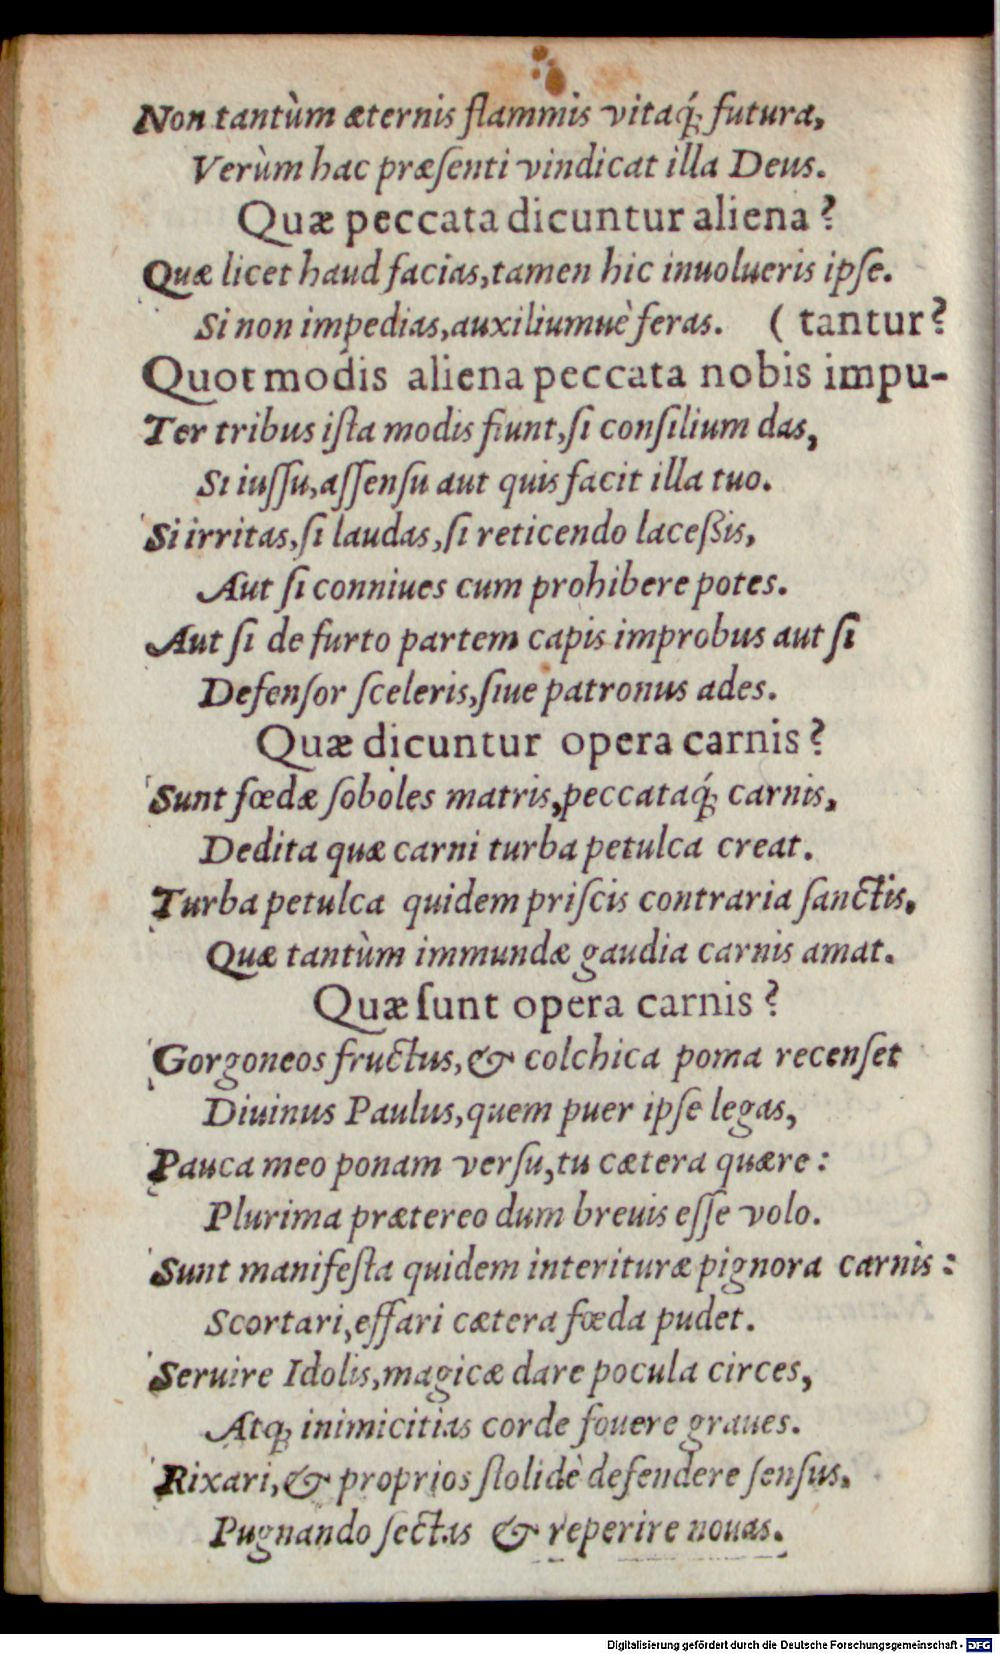 Non tantùm æternis flammis vitaq́; futura,
Verùm hac præſenti vindicat illa Deus.
Quæ peccata dicuntur aliena?
Quæ licet haud facias, tamen hic inuolueris ipſe.
Si non impedias, auxiliumuè feras. ( tantur?
Quot modis aliena peccata nobis impu-
Ter tribus iſta modis fiunt, ſi conſilium das,
Si iuſſu, aſſenſu aut quis facit illa tuo.
Si irritas, ſi laudas, ſi reticendo laceßis,
Aut ſi conniues cum prohibere potes.
Aut ſi de furto partem capis improbus aut ſi
Defenſor ſceleris, ſiue patronus ades.
Quæ dicuntur opera carnis?
Sunt fœdæ ſoboles matris, peccataq́; carnis,
Dedita quæ carni turba petulca creat.
Turba petulca quidem priſcis contraria ſanctis,
Quæ tantùm immundæ gaudia carnis amat.
Quæ ſunt opera carnis?
Gorgoneos fructus, & colchica poma recenſet
Diuinus Paulus, quem puer ipſe legas,
Pauca meo ponam verſu, tu cætera quære:
Plurima prætereo dum breuis eſſe volo.
Sunt manifeſta quidem interituræ pignora carnis:
Scortari, effari cætera fœda pudet.
Seruire Idolis, magicæ dare pocula circes,
Atq; inimicitias corde fouere graues.
Rixari, & proprios ſtolidè defendere ſenſus,
Pugnando ſectas & reperire nouas.
Digitalisierung gefördert durch die Deutsche Forschungsgemeinschaft - DFG